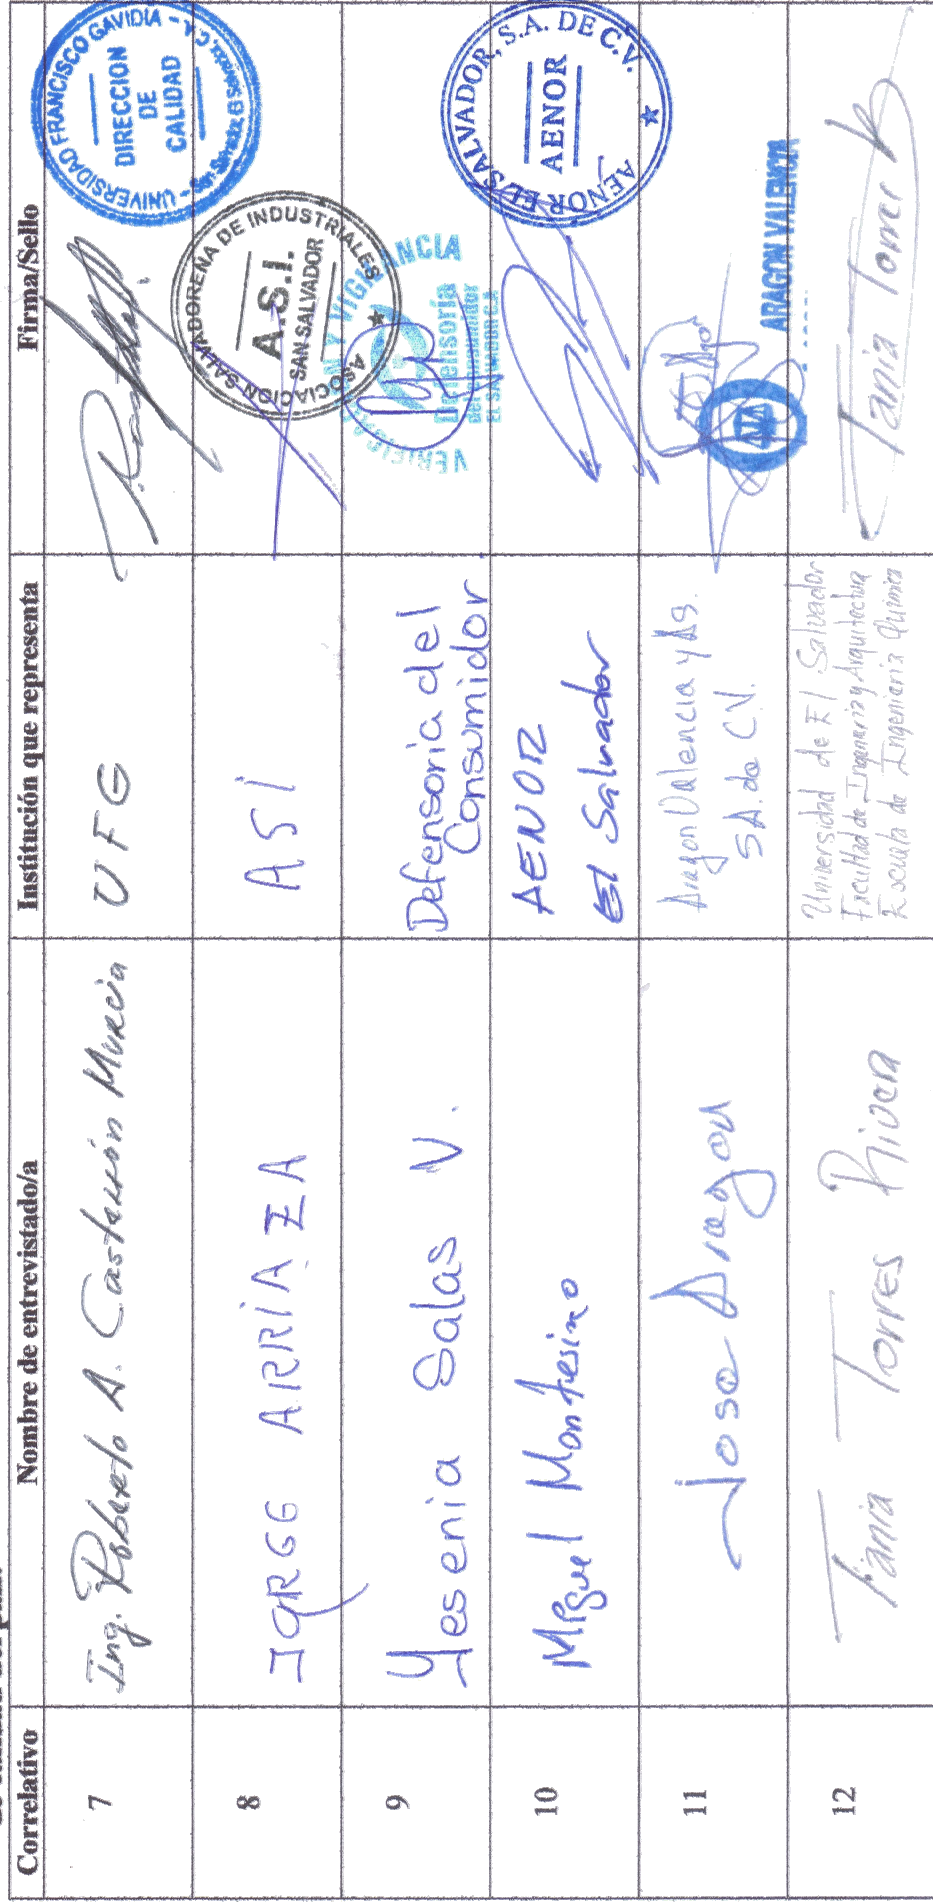 Correlativo
Nombre de entrevistado/a
Institución que representa
Firma/Sello
7
Ing. Roberto A. Castellón Murcia
UFG
UNIVERSIDAD FRANCISCO GAVIDIA
DIRECCION
DE
CALIDAD
8
JORGE ARRIAZA
ASI
ASOCIACION SALVADOREÑA DE INDUSTRIALES
A.S.I.
SAN SALVADOR
9
Yesenia Salas V.
Defensoria del
Consumidor
VERIFICACIÓN Y VIGILANCIA
Defensoría
del Consumidor
EL SALVADOR
10
Miguel Montesino
AENOR
El Salvador
AENOR EL SALVADOR, S.A. DE C.V.
AENOR
11
Jose Aragon
Aragon Valencia y As.
S.A. de C.V.
ARAGON VALENCIA
12
Tania Torres Rivera
Universidad de El Salvador
Facultad de Ingenieria y Arquitectura
Escuela de Ingenieria Quimica
Tania Torres R